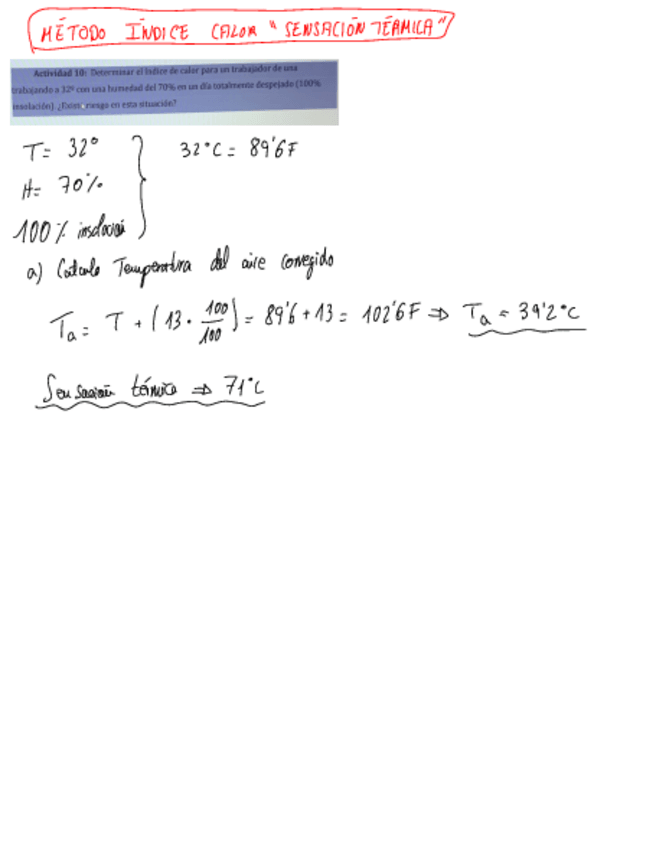 MÉTODO ÍNDICE CALOR "SENSACIÓN TÉRMICA"
Actividad 10: Determinar el índice de calor para un trabajador de una
trabajando a 32º con una humedad del 70% en un día totalmente despejado (100%
insolación). ¿Existe riesgo en esta situación?
T= 32º
32°C = 89'6F
H= 70%
100% insolación
a) Calculo Temperatura del aire corregido
Ta = T + (13 · 100/100) = 89'6 + 13 = 102'6F ⇒ Ta = 39'2°C
Sensación térmica ⇒ 71°C